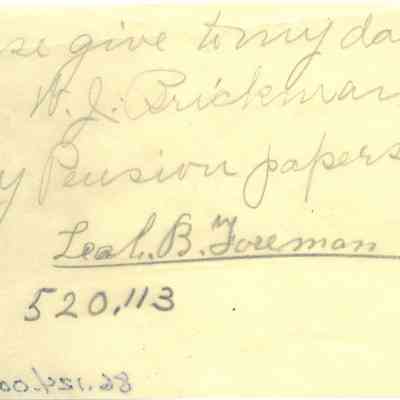 se give to my da
W. J. Brickman
y Pension papers
Leah. B. Foreman
520,113
86.124.00